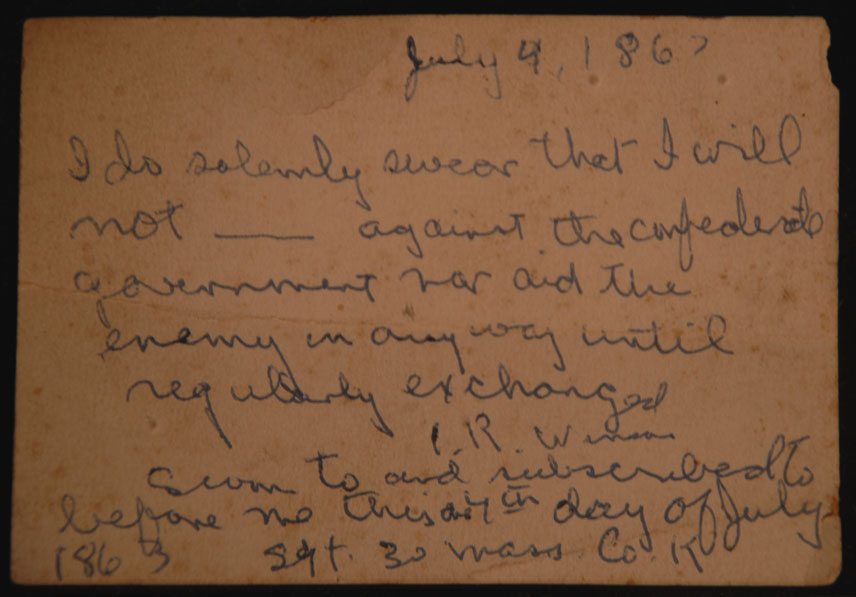 July 4, 1863
I do solemnly swear that I will
not —— against the confederate
government nor aid the
enemy in any way until
regularly exchanged
R.
sworn to and subscribed to
before me this 4th day of July
1863 Sgt. 30 Mass Co. K